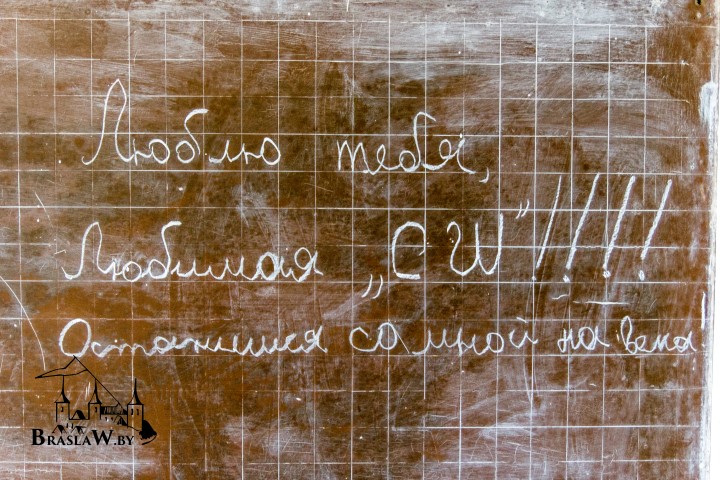 Люблю тебя,
Любимая „СШ"!!!!
Останишся со мной на века!
BRASLAW.BY